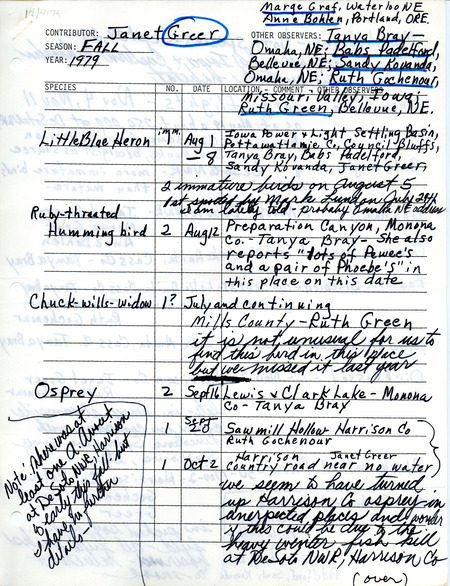 Marge Graf, Waterloo NE
Anne Bohlen, Portland, ORE.
CONTRIBUTOR: Janet Greer OTHER OBSERVERS: Tanya Bray-
SEASON: FALL Omaha, NE; Babs Padelford,
YEAR: 1979 Bellevue, NE; Sandy Kovanda,
Omaha, NE; Ruth Gochenour,
SPECIES NO. DATE LOCATION - COMMENT - OTHER OBSERVERS
Missouri Valley, Iowa;
Ruth Green, Bellevue, NE.
Little Blue Heron imm. 1 Aug 1 Iowa Power & Light Settling Basin,
Pottawattamie Co, Council Bluffs,
-8 Tanya Bray, Babs Padelford,
Sandy Kovanda, Janet Greer
2 immature birds on August 5
1st spotted by Mark Lundon July 28th
I am lately told - probably Omaha NE address
Ruby-throated
Hummingbird 2 Aug 12 Preparation Canyon, Monona
Co.- Tanya Bray- She also
reports "lots of Pewee's
and a pair of Phoebe's" in
this place on this date
Chuck-wills-widow 1? July and continuing
Mills County - Ruth Green
it is not unusual for us to
find this bird in this place
but we missed it last year
Osprey 2 Sept 16 Lewis & Clark Lake - Monona
Co - Tanya Bray
1 Sept Sawmill Hollow Harrison Co
Ruth Gochenour
1 Oct 2 Harrison Janet Greer
country road near no water
we seem to have turned
up Harrison Co osprey in
unexpected places and wonder
if this could be due to the
heavy winter fish kill
at DeSoto NWR, Harrison Co
(over)
Note: there was at
least one
at DeSoto NWR Harrison
Co early this fall but
I have no further
details-